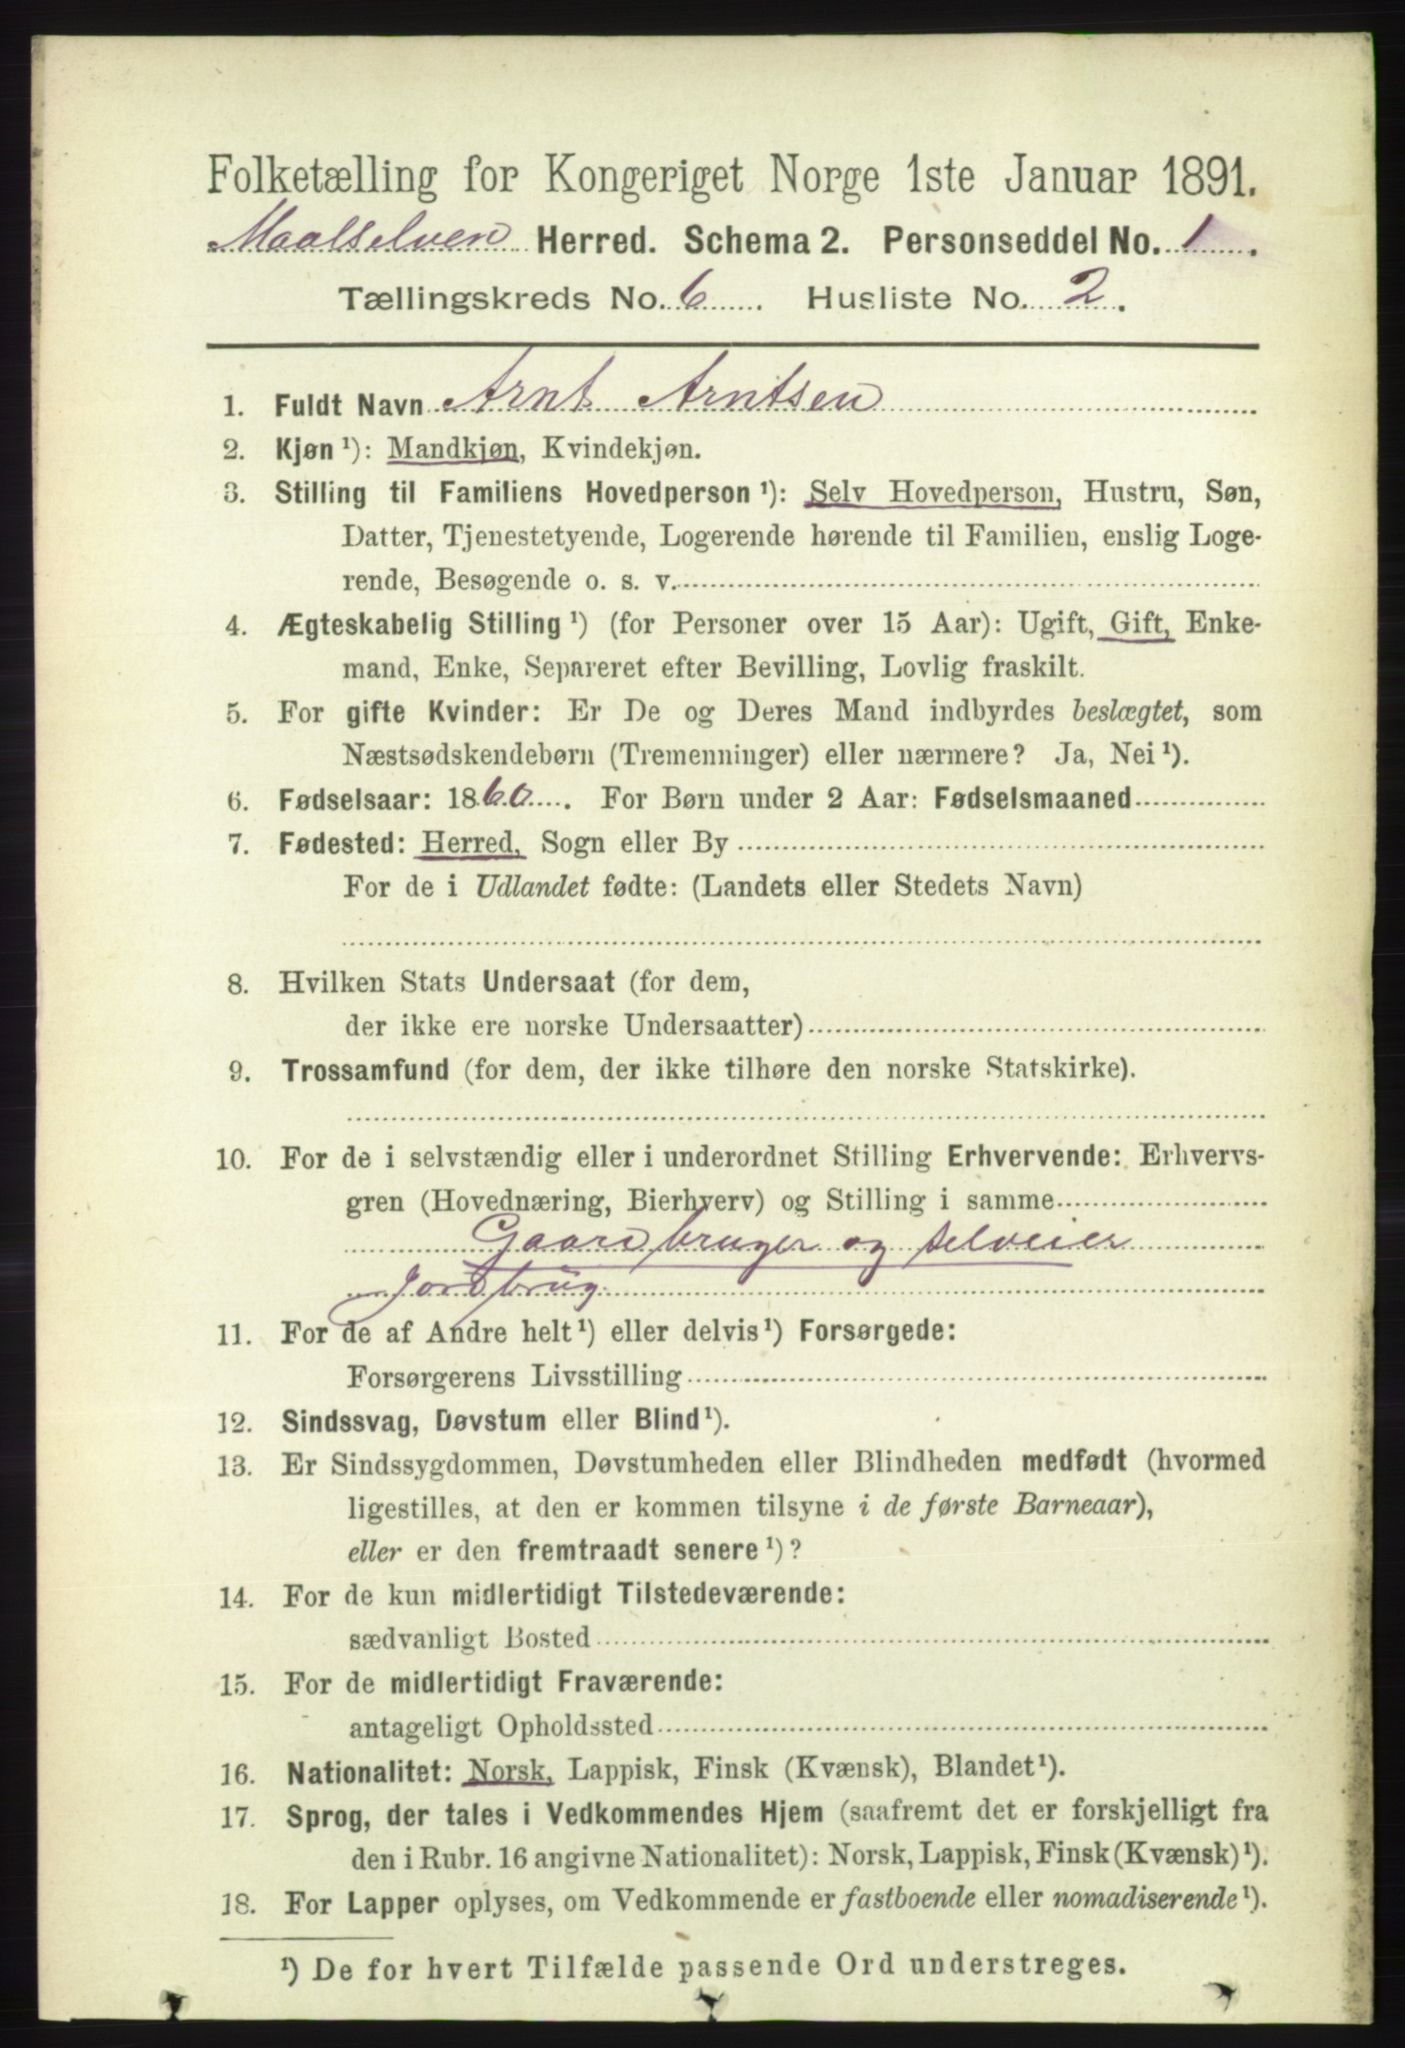 Folketælling for Kongeriget Norge 1ste Januar 1891.
Maalselven Herred. Schema 2. Personseddel No. 1.
Tællingskreds No. 6. Husliste No. 2.
1. Fuldt Navn Arnt Arntsen
2. Kjøn ¹): Mandkjøn, Kvindekjøn.
3. Stilling til Familiens Hovedperson ¹): Selv Hovedperson, Hustru, Søn,
Datter, Tjenestetyende, Logerende hørende til Familien, enslig Loge-
rende, Besøgende o. s. v.
4. Ægteskabelig Stilling ¹) (for Personer over 15 Aar): Ugift, Gift, Enke-
mand, Enke, Separeret efter Bevilling, Lovlig fraskilt.
5. For gifte Kvinder: Er De og Deres Mand indbyrdes beslægtet, som
Næstsødskendebørn (Tremenninger) eller nærmere? Ja, Nei ¹).
6. Fødselsaar: 1860. For Børn under 2 Aar: Fødselsmaaned
7. Fødested: Herred, Sogn eller By
For de i Udlandet fødte: (Landets eller Stedets Navn)
8. Hvilken Stats Undersaat (for dem,
der ikke ere norske Undersaatter)
9. Trossamfund (for dem, der ikke tilhøre den norske Statskirke).
10. For de i selvstændig eller i underordnet Stilling Erhvervende: Erhvervs-
gren (Hovednæring, Bierhverv) og Stilling i samme
Gaardbruger og selveier
Jordbrug
11. For de af Andre helt ¹) eller delvis ¹) Forsørgede:
Forsørgerens Livsstilling
12. Sindssvag, Døvstum eller Blind ¹).
13. Er Sindssygdommen, Døvstumheden eller Blindheden medfødt (hvormed
ligestilles, at den er kommen tilsyne i de første Barneaar),
eller er den fremtraadt senere ¹)?
14. For de kun midlertidigt Tilstedeværende:
sædvanligt Bosted
15. For de midlertidigt Fraværende:
antageligt Opholdssted
16. Nationalitet: Norsk, Lappisk, Finsk (Kvænsk), Blandet ¹).
17. Sprog, der tales i Vedkommendes Hjem (saafremt det er forskjelligt fra
den i Rubr. 16 angivne Nationalitet): Norsk, Lappisk, Finsk (Kvænsk) ¹).
18. For Lapper oplyses, om Vedkommende er fastboende eller nomadiserende ¹).
¹) De for hvert Tilfælde passende Ord understreges.